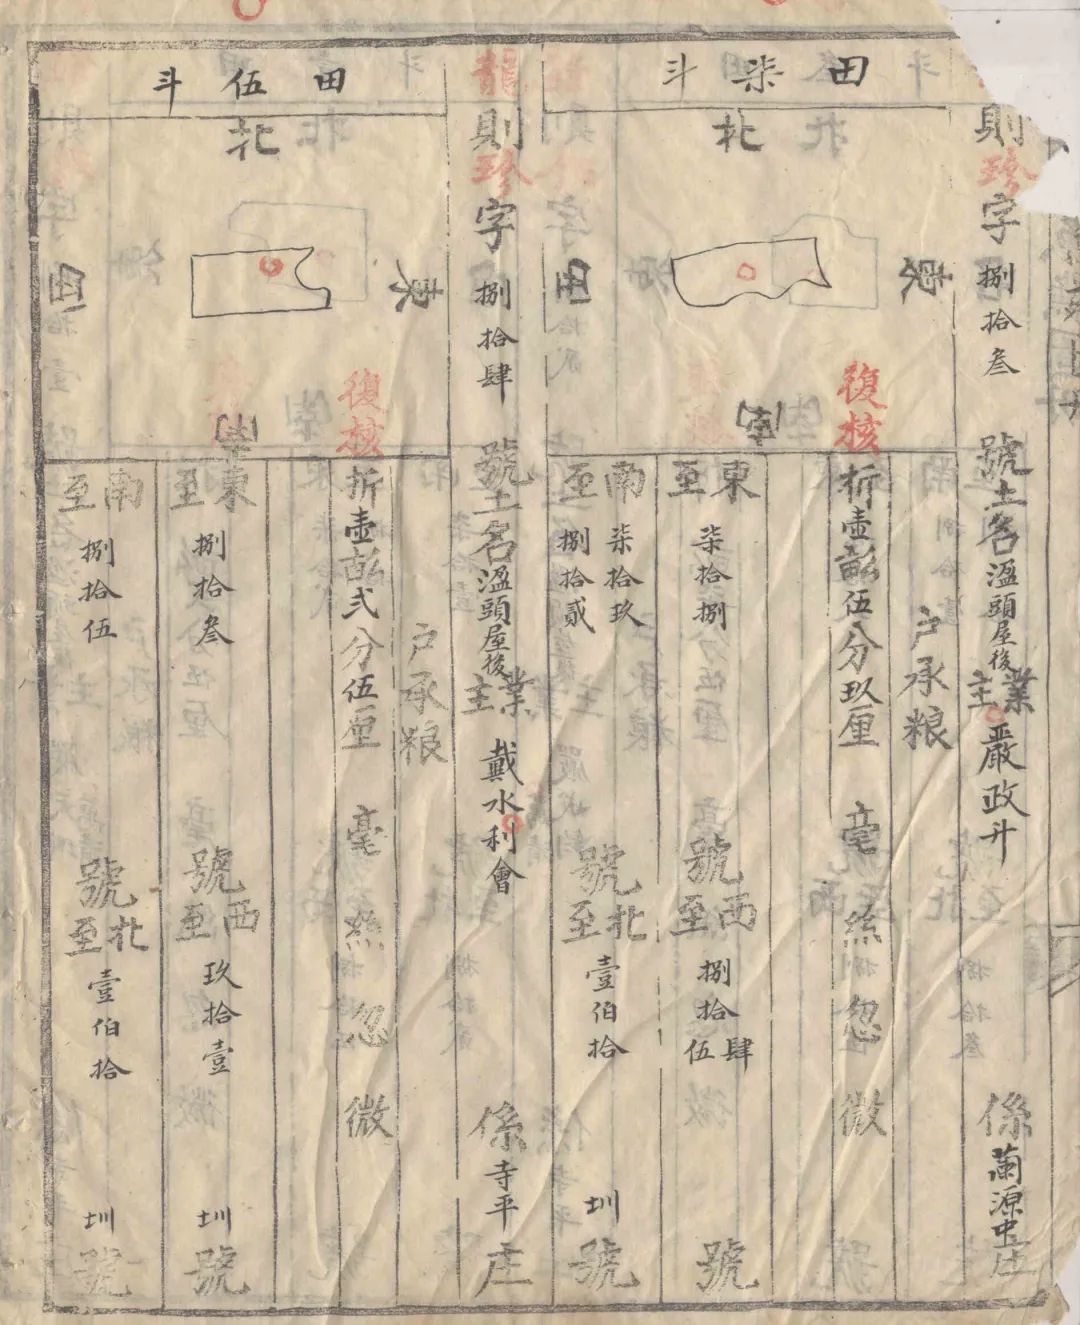 田柒斗
北
東
南
西
復核
則珍字捌拾叁號土名溫頭屋後業主嚴政升係蘭源庄
戶承粮
折壹畝伍分玖厘毫絲忽微
東至柒拾捌號西至捌拾肆伍號
南至柒拾玖捌拾貳號北至壹伯拾圳號
田伍斗
北
東
南
西
復核
龍則珍字捌拾肆號土名溫頭屋後業主戴水利會係寺平庄
戶承粮
折壹畝弍分伍厘毫絲忽微
東至捌拾叁號西至玖拾壹圳號
南至捌拾伍號北至壹伯拾圳號